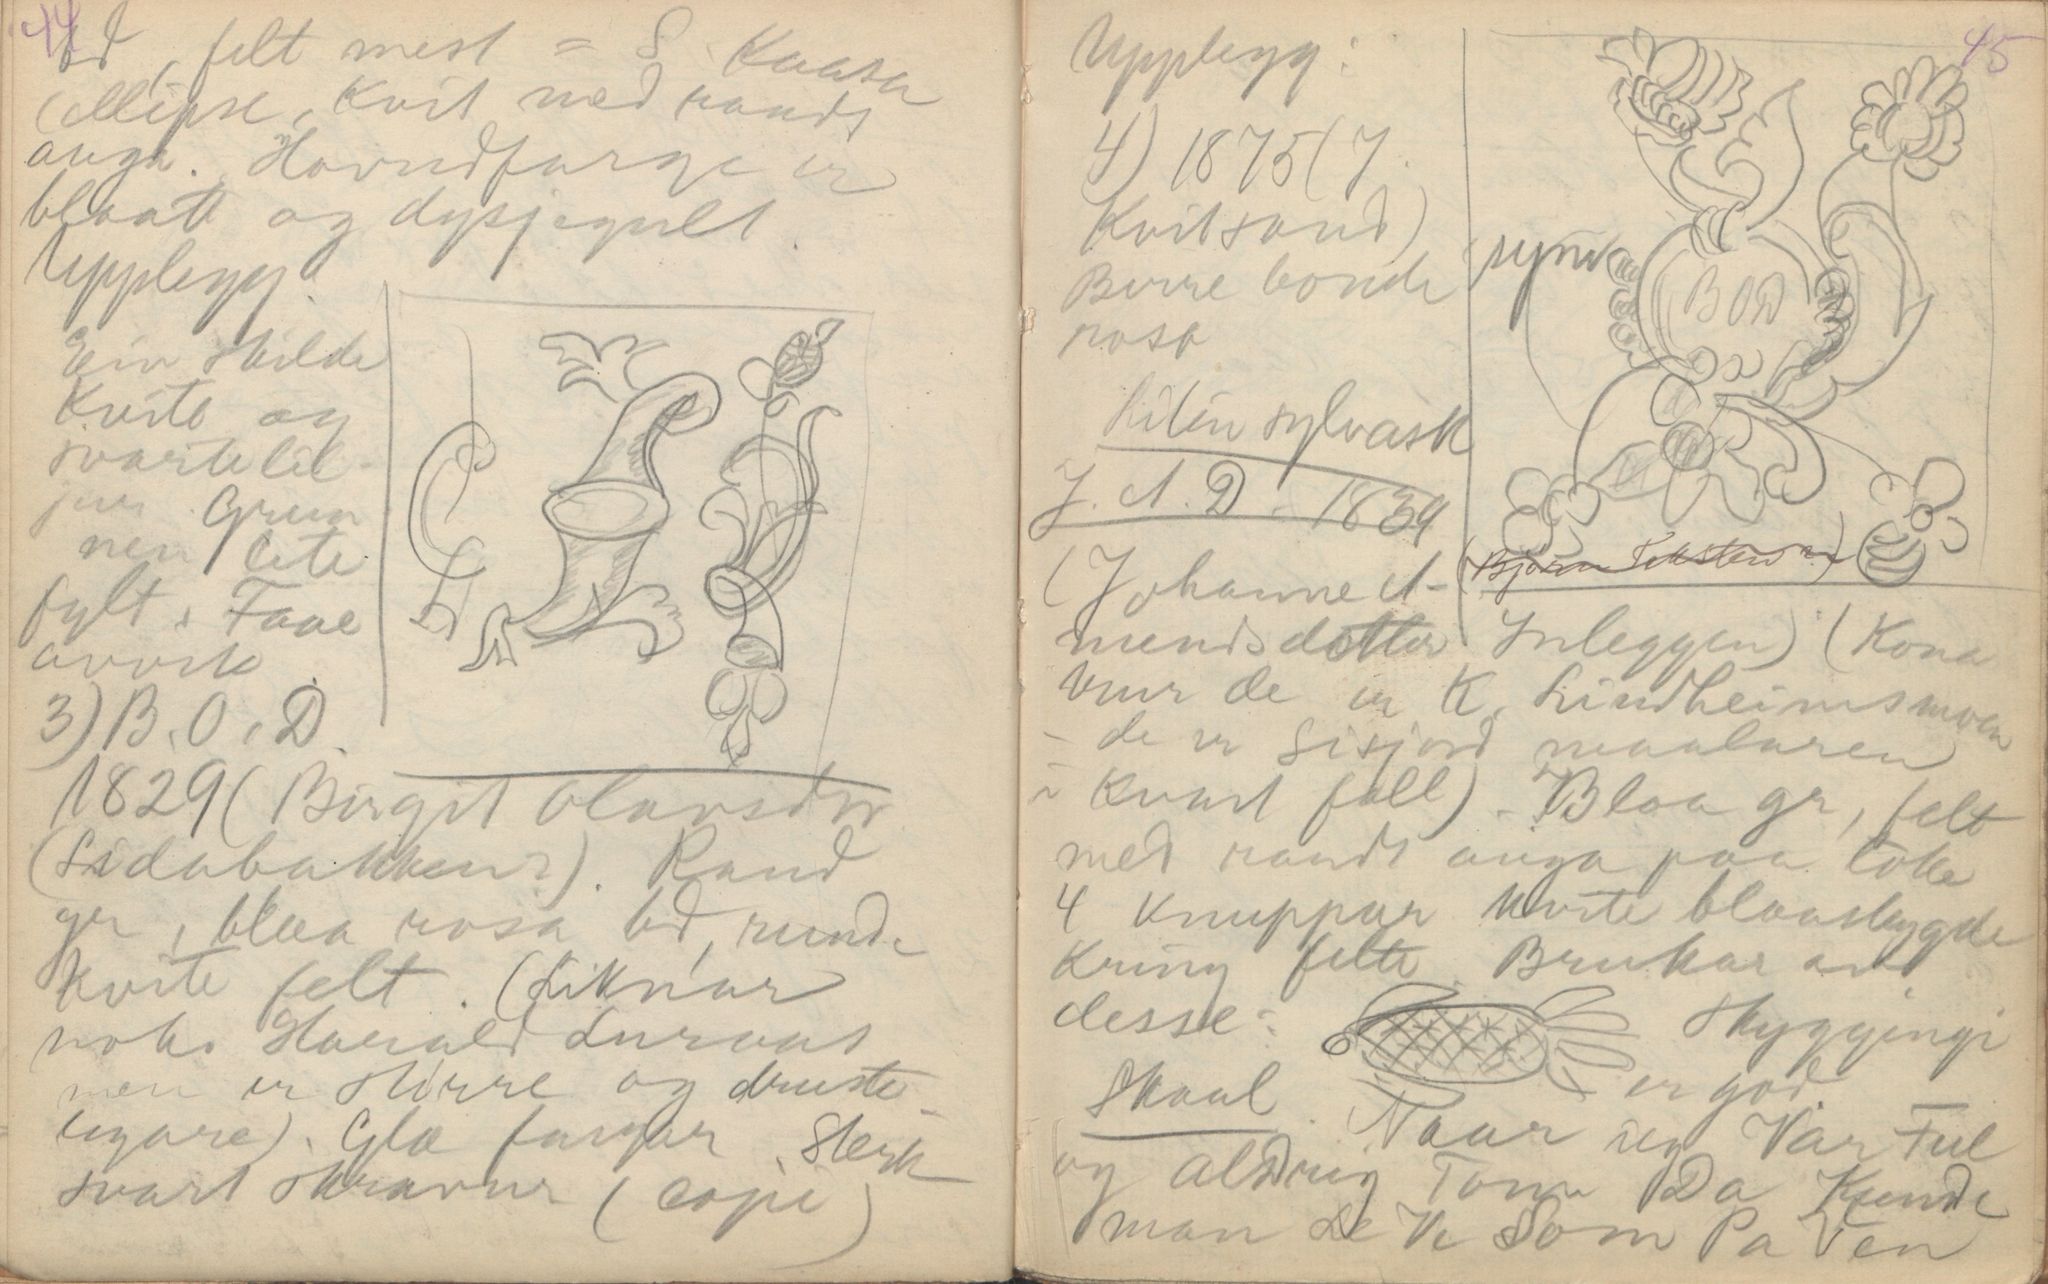 44
bd, felt mest = S. Kaasa
(ellipse, kvit med raudt
auga. Hovudfarge er
blaatt og dysjegult.
Upplegg:
Ein skilde
kvite og
svarte lil-
jur. Grun
nen lite
fylt. Faae
avvik
3) B. O. D.
1829 (Birgit Olavsdtr
(Lidabakken?). Raud
gr, blaa rosa bd, runde
kvite felt. (Liknar
noko Harald Luraas
men er stirre og druste-
ligare). Gla fargar. Sterk
svart skravur (copi)
45
Upplegg:
4) 1875 (J.
Kvitsand)
Berre bonde
rosa
BOD
Liten sylvask
J. A. D. 1839
(Bjørn
(Johanne A-
mundsdotter Inleggen) (Kona
vur de er K. Lindheimsmoen
- de er Sisjord maalaren
i kvart fall). Blaa gr, felt
med raudt auga paa loke
4 knuppar kvite blaaskygde
kring felte. Brukar av
desse: Skyggingi
er god.
Skaal Naar ieg Var Ful
og alDrig Tom Da Kunde
man Le Ve Som Pa Ven